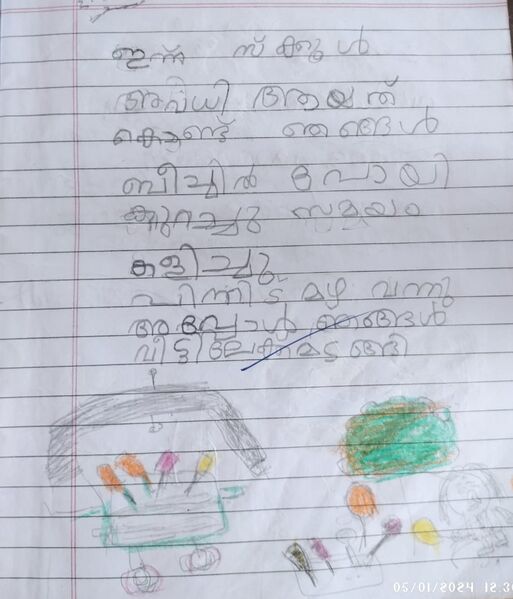 ഇന്ന് സ്ക്കൂൾ
അവധി ആയത്
കൊണ്ട് ഞങ്ങൾ
ബീച്ചിൽ പോയി
കുറച്ചു സമയം
കളിച്ചു
പിന്നീട് മഴ വന്നു
അപ്പോൾ ഞങ്ങൾ
വീട്ടിലേക്ക് മടങ്ങി
02/01/2024 12:30